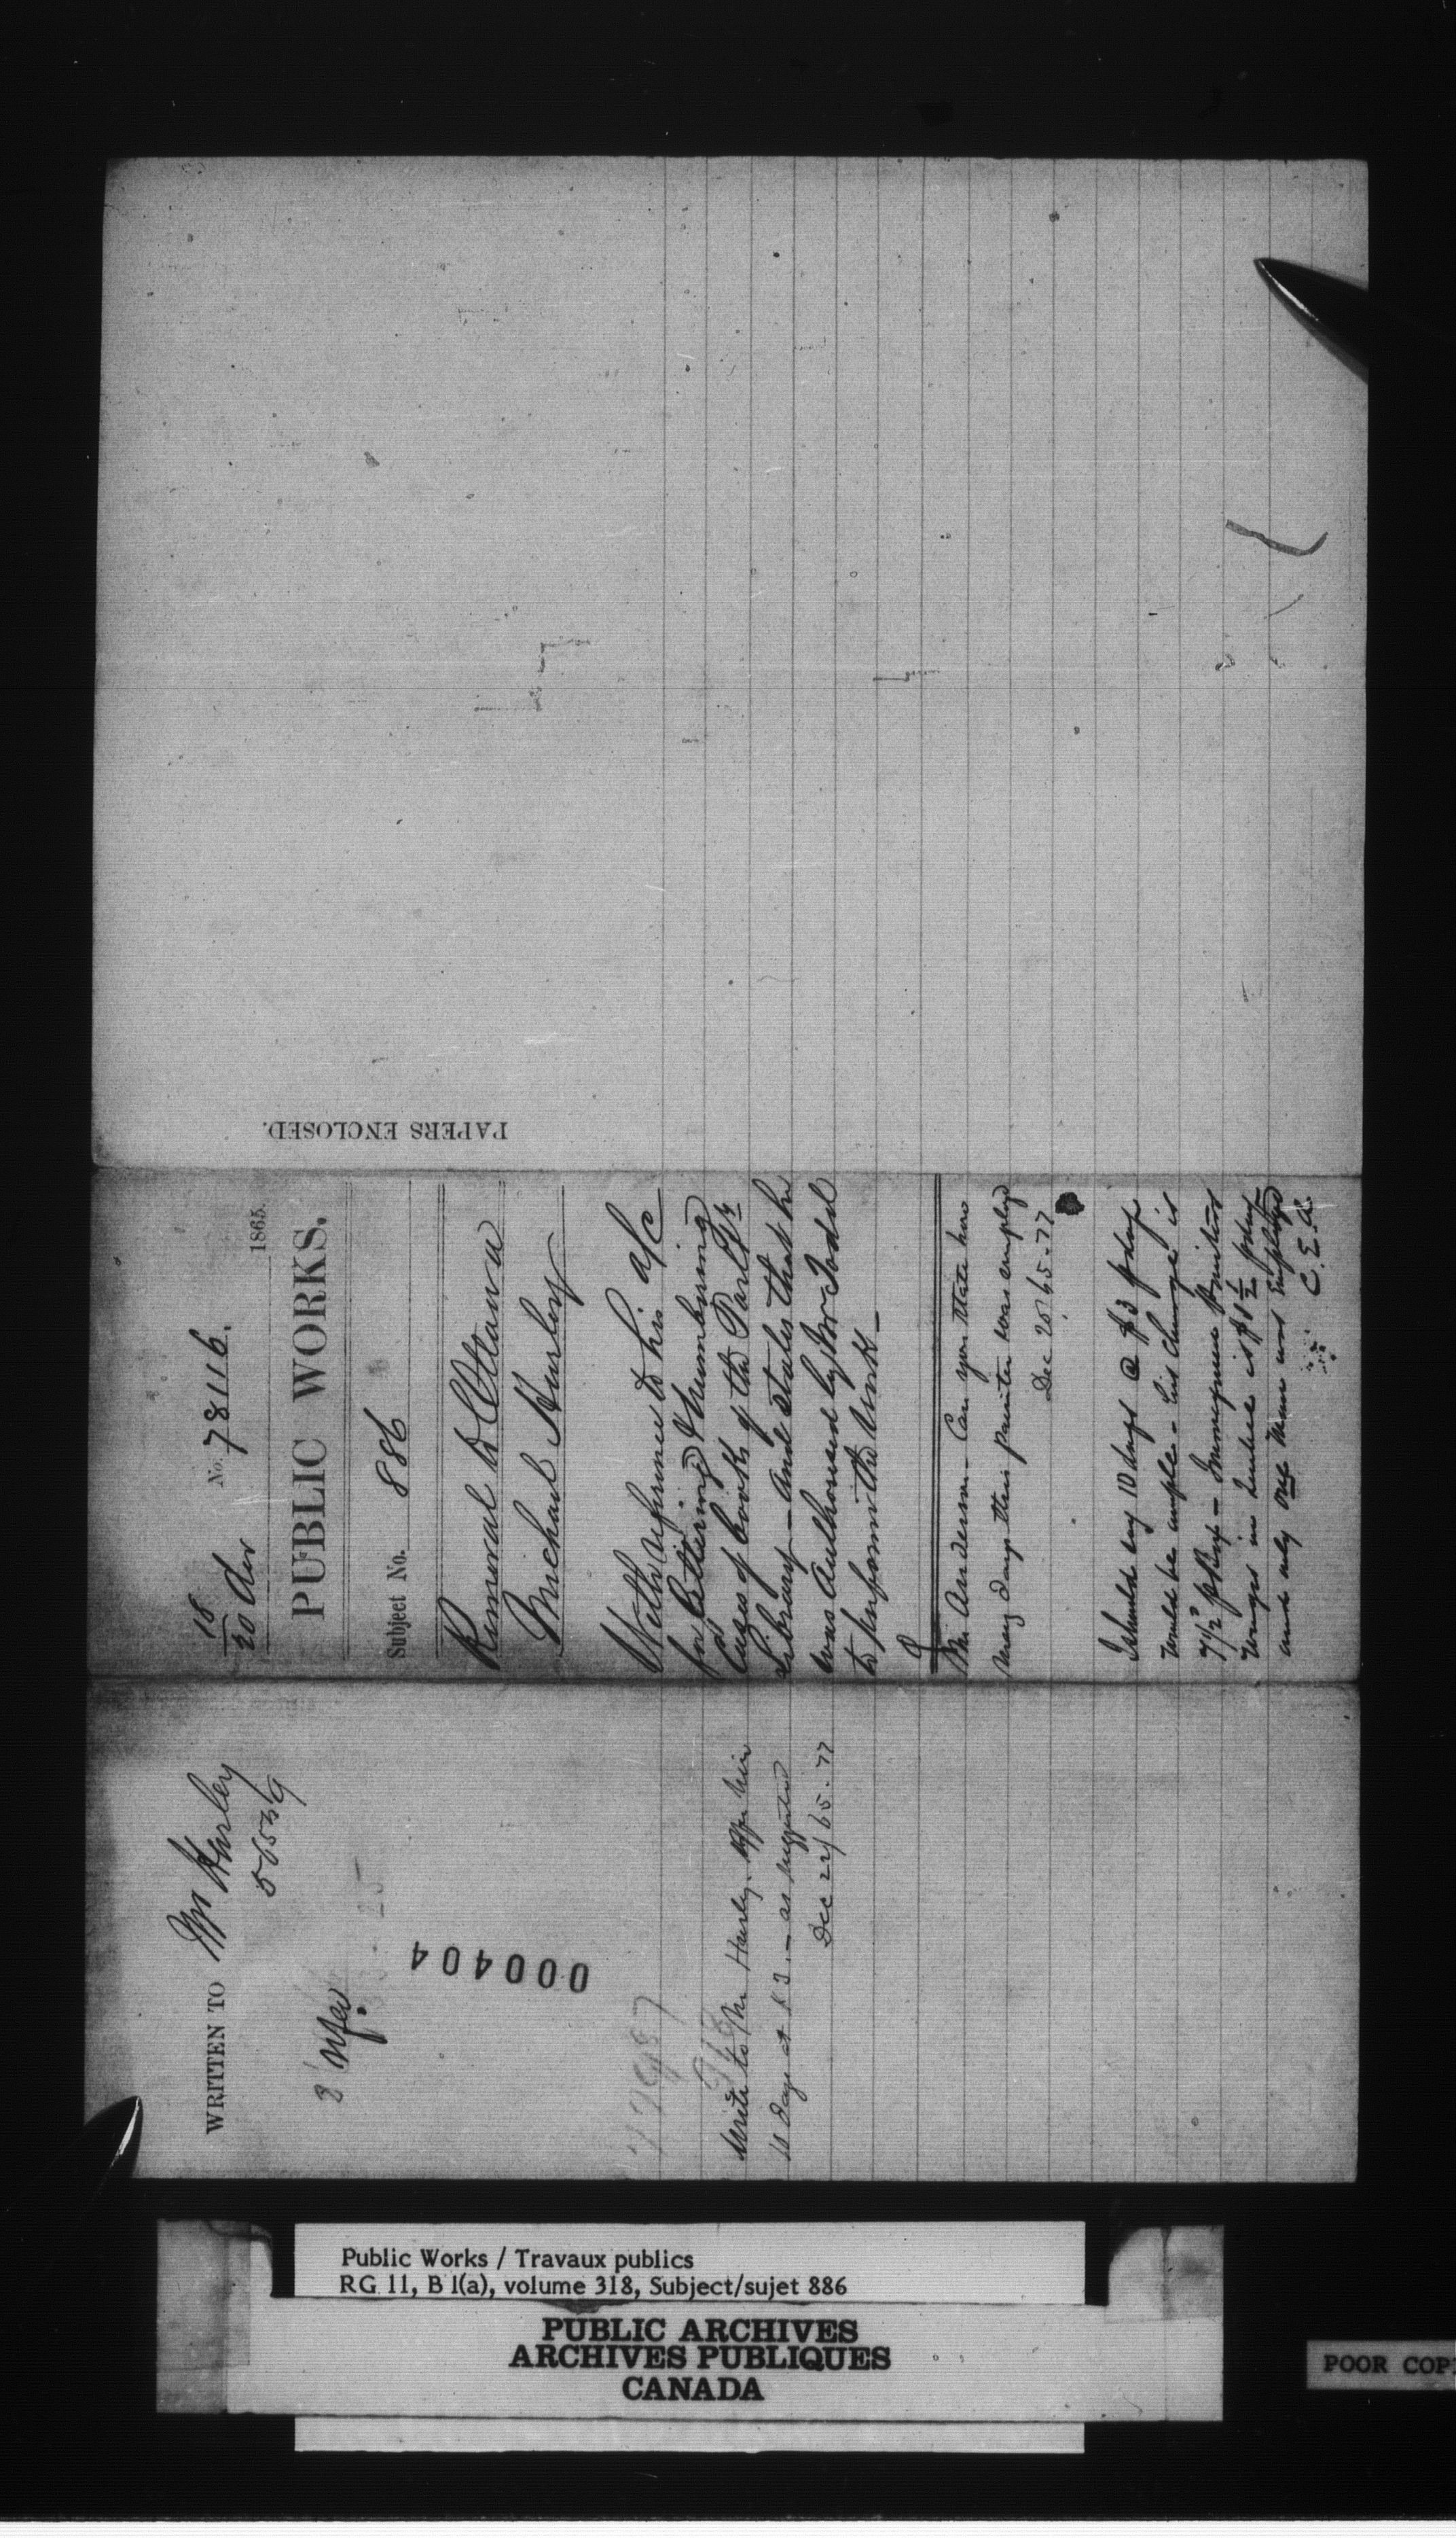 18/20 Dec No. 78116. 1865.
PUBLIC WORKS.
Subject No. 886
Removal to Ottawa
Michael Hurley
With reference to his a/c
for lettering & numbering
cases of books of the Parlty
Library — and states that he
was Authorised by Mr Todd
to perform the work —
Mr Anderson — Can you state how
many days this painter was employed
Dec 20/65.
I should say 10 days @ $3 p day
would be ample — his charge is
wages in Quebec is $1 1/2 p day
and only one man was employed
PAPERS ENCLOSED.
WRITTEN TO Mr Hurley
000404
Write to Mr Hurley, offer him
10 days at $3. — as suggested
Dec 22/65.
Public Works / Travaux publics
RG 11, B 1(a), volume 318, Subject/sujet 886
PUBLIC ARCHIVES
ARCHIVES PUBLIQUES
CANADA
POOR COP